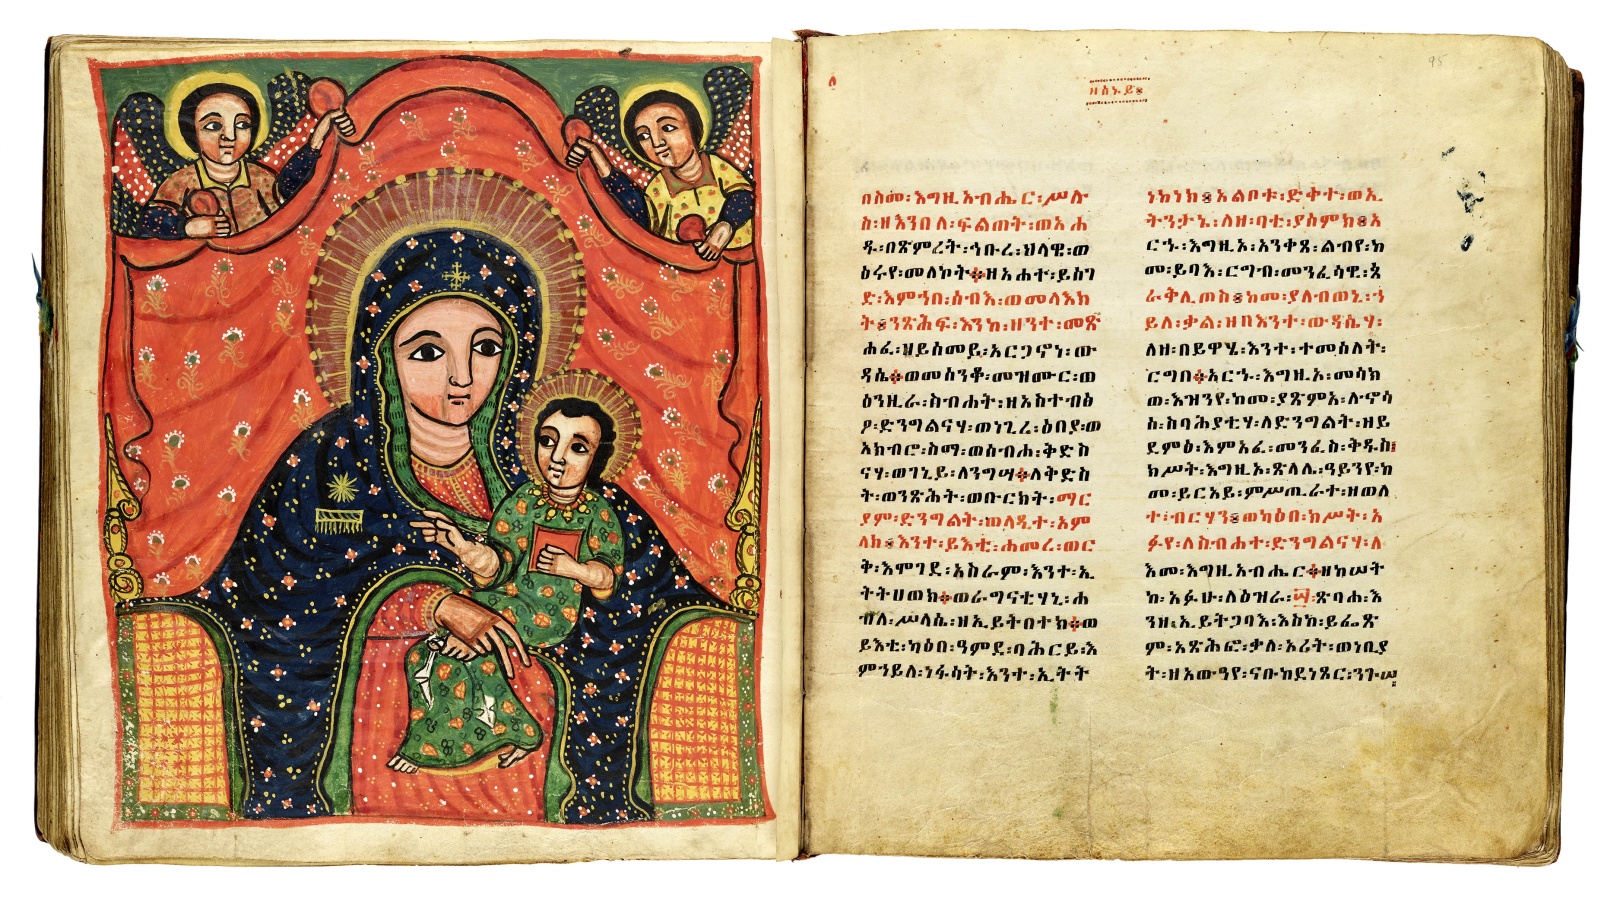 95
ዘሰኑይ፨
በስመ፡እግዚአብሔር፡ሥሉ
ስ፡ዘእንበለ፡ፍልጠት፡ወአሐ
ዱ፡በጽምረት፡ኅቡረ፡ህላዌ፡ወ
ዕሩየ፡መለኮት፨ዘአሐተ፡ይሰገ
ድ፡እምኀበ፡ሰብእ፡ወመላእክ
ት፨ንጽሕፍ፡እንከ፡ዘንተ፡መጽ
ሐፈ፡ዘይሰመይ፡አርጋኖነ፡ው
ዳሴ፨ወመሰንቆ፡መዝሙር፡ወ
ዕንዚራ፡ስብሐት፡ዘአስተብፅ
ዖ፡ድንግልናሃ፡ወነጊረ፡ዕበያ፡ወ
አክብሮ፡ስማ፡ወሰብሐ፡ቅድስ
ናሃ፡ወገኒይ፡ለንግሣ፨ለቅድስ
ት፡ወንጽሕት፡ወቡርክት፡ማር
ያም፡ድንግልት፡ወላዲተ፡አም
ላክ፨እንተ፡ይእቲ፡ሐመረ፡ወር
ቅ፡እሞገደ፡አስራም፡እንተ፡ኢ
ትትሀወክ፨ወራግናቲሃኒ፡ሐ
ብለ፡ሥላሴ፡ዘኢይትበተክ፨ወ
ይእቲ፡ካዕበ፡ዓምደ፡ባሕርይ፡እ
ምኀይለ፡ነፋሳት፡እንተ፡ኢትት
ነክነክ፨አልቦቱ፡ድቀተ፡ወኢ
ትንታኔ፡ለዘ፡ባቲ፡ያሰምክ፨አ
ርኁ፡እግዚአ፡አንቀጸ፡ልብየ፡ከ
መ፡ይባእ፡ርግብ፡መንፈሳዊ፡ጰ
ራቅሊጦስ፨ከመ፡ያለብወኒ፡ኀ
ይለ፡ቃል፡ዘበእንተ፡ውዳሴሃ፡
ለዘ፡በይዋሄ፡እንተ፡ተመሰለት፡
ርግበ፨አርኁ፡እግዚአ፡መሳክ
ወ፡እዝንየ፡ከመ፡ያጽምአ፡ሉኖሳ
ሴ፡ስባሕያቲሃ፡ለድንግልት፡ዘይ
ደምፅ፡እምአፈ፡መንፈስ፡ቅዱስ፨
ክሥት፡እግዚኦ፡ጽላሌ፡ዓይንየ፡ከ
መ፡ይርአይ፡ምሥጢራተ፡ዘወለ
ተ፡ብርሃን፨ወካዕበ፡ክሥት፡አ
ፉየ፡ለስብሐተ፡ድንግልናሃ፡ለ
እመ፡እግዚአብሔር፨ዘከሠት
ከ፡አፉሁ፡ለዕዝራ፡ሣ፡ጽባሐ፡እ
ንዘ፡ኢይትጋባእ፡እስከ፡ይፌጽ
ም፡አጽሕፎ፡ቃለ፡ኦሪት፡ወነቢያ
ት፡ዘአውዓየ፡ናቡከደነጾር፡ንጉሠ፡